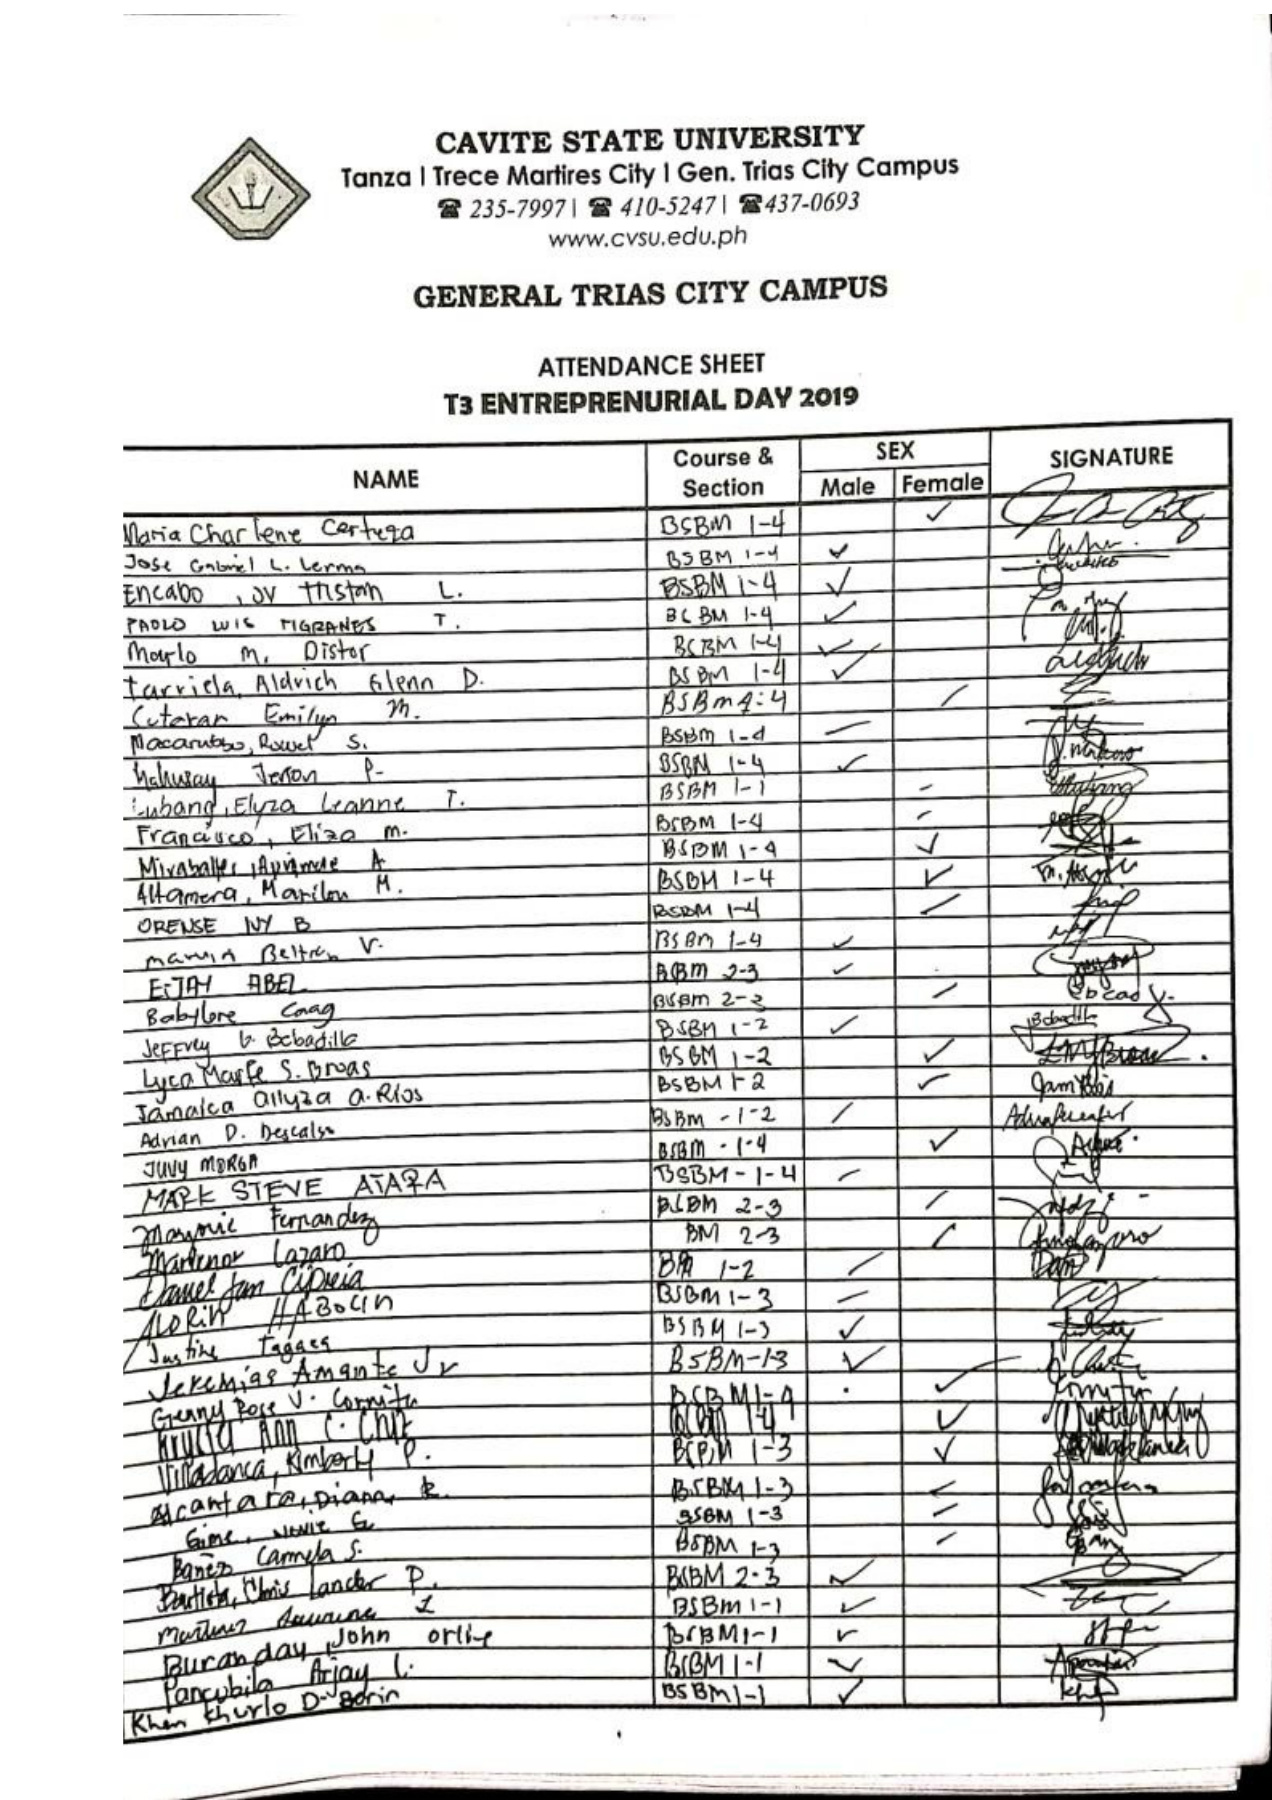 CAVITE STATE UNIVERSITY
Tanza | Trece Martires City | Gen. Trias City Campus
☎ 235-7997 | ☎ 410-5247 | ☎ 437-0693
www.cvsu.edu.ph
GENERAL TRIAS CITY CAMPUS
ATTENDANCE SHEET
T3 ENTREPRENURIAL DAY 2019
NAME Course & Section SEX Male Female SIGNATURE
Maria Charlene Certeza BSBM 1-4 ✓
Jose Gabriel L. Lerma BSBM 1-4 ✓
Encabo, Jv Tristan L. BSBM 1-4 ✓
PAOLO LUIS MGRANES T. BSBM 1-4 ✓
Marlo M. Distor BSBM 1-4 ✓
Tarriela, Aldrich Glenn D. BSBM 1-4 ✓
Cutaran Emilyn M. BSBM
Macarubbo, Rowel S. BSBM 1-4
Jeron P. BSBM 1-4 ✓
Lubang, Elyza Leanne T. BSBM 1-1
Francisco, Eliza M. BSBM 1-4
A BSBM 1-4 ✓
Altamera, Marilou M. BSBM 1-4 ✓
ORENSE IVY B BSBM 1-4 ✓
Marvin Beltran V. BSBM 1-4 ✓
EJAY ABEL BSBM 2-3 ✓
Babylore Caag BSBM 2-3
Jeffrey G. Bobadilla BSBM 1-2 ✓
Lyca Marfe S. Broas BSBM 1-2 ✓
Jamaica Allyza A. Rios BSBM 1-2 ✓
Adrian D. Descalso BSBM - 1-2
JUVY MORGA BSBM - 1-4 ✓
MARK STEVE ATAZA BSBM - 1-4
Marjorie Fernandez BSBM 2-3
Marlenor Lazaro BM 2-3
Daniel Jan Cipreia BM 1-2
ALDRIN HABOCIN BSBM 1-3
Justine Tagaca BSBM 1-3 ✓
Jeremias Amante Jr BSBM-1-3 ✓
Genny Rose V. Cornita BSBM 1-4 ✓
Krystal Ann C. Cruz BSBM 1-4 ✓
Villadanca, Kimberly P. BSBM 1-3 ✓
Alcantara, Diana, R. BSBM 1-3
Gime, G. BSBM 1-3
Bañez Carmela S. BSBM 1-3
Bautista, Chris Lander P. BSBM 2-3 ✓
Martinez L BSBM 1-1 ✓
Buranday, John Orline BSBM 1-1 ✓
Pancubila Arjay L. BSBM 1-1 ✓
Khen Khurlo D. Borin BSBM 1-1 ✓